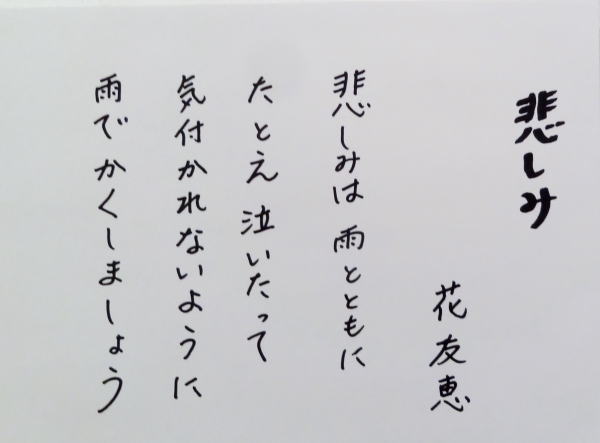 悲しみ
花友恵
悲しみは 雨とともに
たとえ 泣いたって
気付かれないように
雨でかくしましょう